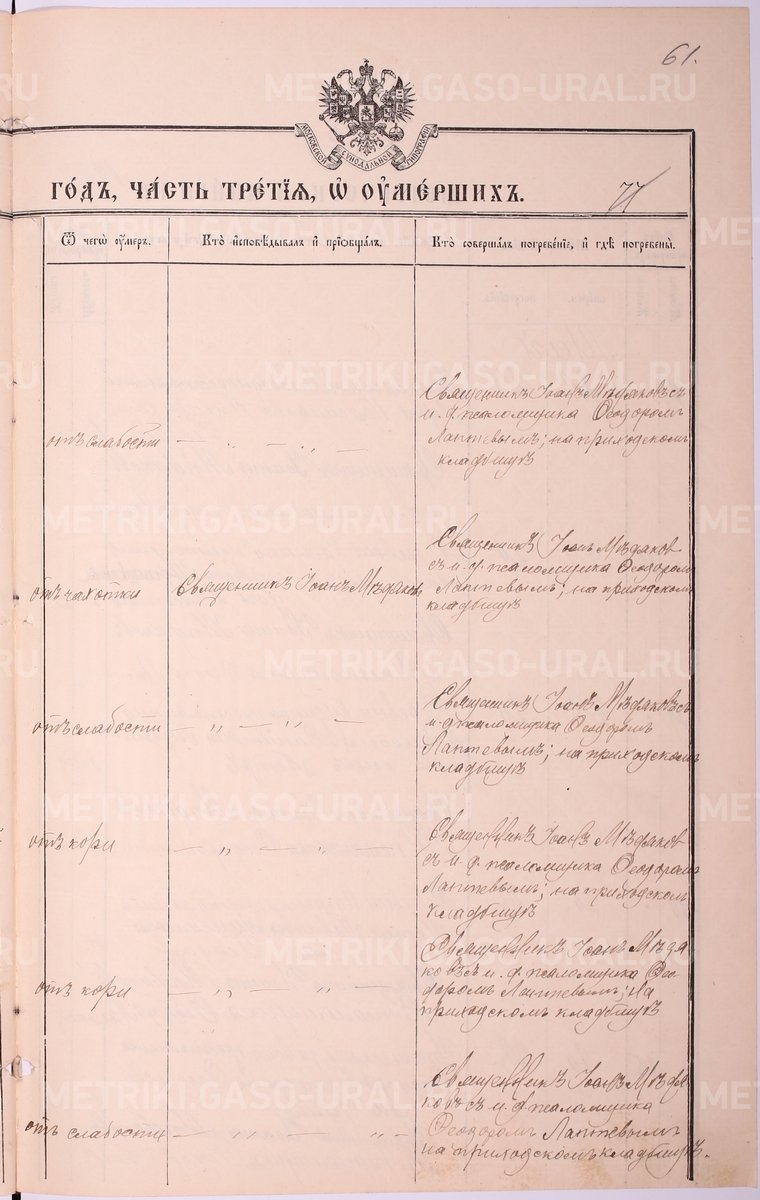 61.
METRIKI.GASO-URAL.RU
МОСКОВСКОЙ СѴНОДАЛЬНОЙ ТИПОГРАФІИ
го́дъ, ча́сть тре́тїѧ, ѡ҆ ᲂу҆ме́ршихъ.
77
Ѿ чегѡ̀ ᲂу҆́меръ.
Кто̀ и҆сповѣ́дывалъ и҆ прїѡбща́лъ.
Кто̀ соверша́лъ погребе́нїе, и҆ гдѣ̀ погребены̀.
отъ слабости
— „ — „ —
Священникъ Іоаннъ Мѣдяковъ съ
и. д. псаломщика Ѳеодоромъ
Лаптевымъ; на приходскомъ
кладбищѣ
отъ чахотки
Священникъ Іоаннъ Мѣдяковъ
Священникъ Іоаннъ Мѣдяковъ
съ и. д. псаломщика Ѳеодоромъ
Лаптевымъ; на приходскомъ
кладбищѣ
отъ слабости
— „ — „ —
Священникъ Іоаннъ Мѣдяковъ съ
и. д. псаломщика Ѳеодоромъ
Лаптевымъ; на приходскомъ
кладбищѣ
отъ кори
— „ — „ —
Священникъ Іоаннъ Мѣдяков
съ и. д. псаломщика Ѳеодоромъ
Лаптевымъ; на приходскомъ
кладбищѣ
отъ кори
— „ — „ —
Священникъ Іоаннъ Мѣдя
ковъ съ и. д. псаломщика Ѳео
доромъ Лаптевымъ; на
приходскомъ кладбищѣ
отъ слабости
— „ — „ —
Священникъ Іоаннъ Мѣдя
ковъ съ и. д. псаломщика
Ѳеодоромъ Лаптевымъ
на приходскомъ кладбищѣ.